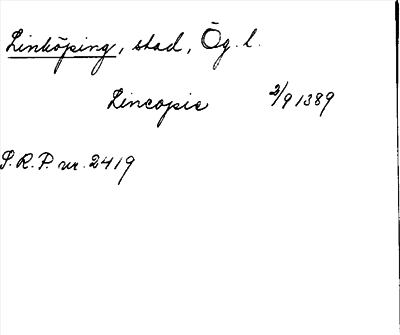 Linköping, stad, Ög. l.
Lincopie 2/9 1389
S.R.P. nr. 2419